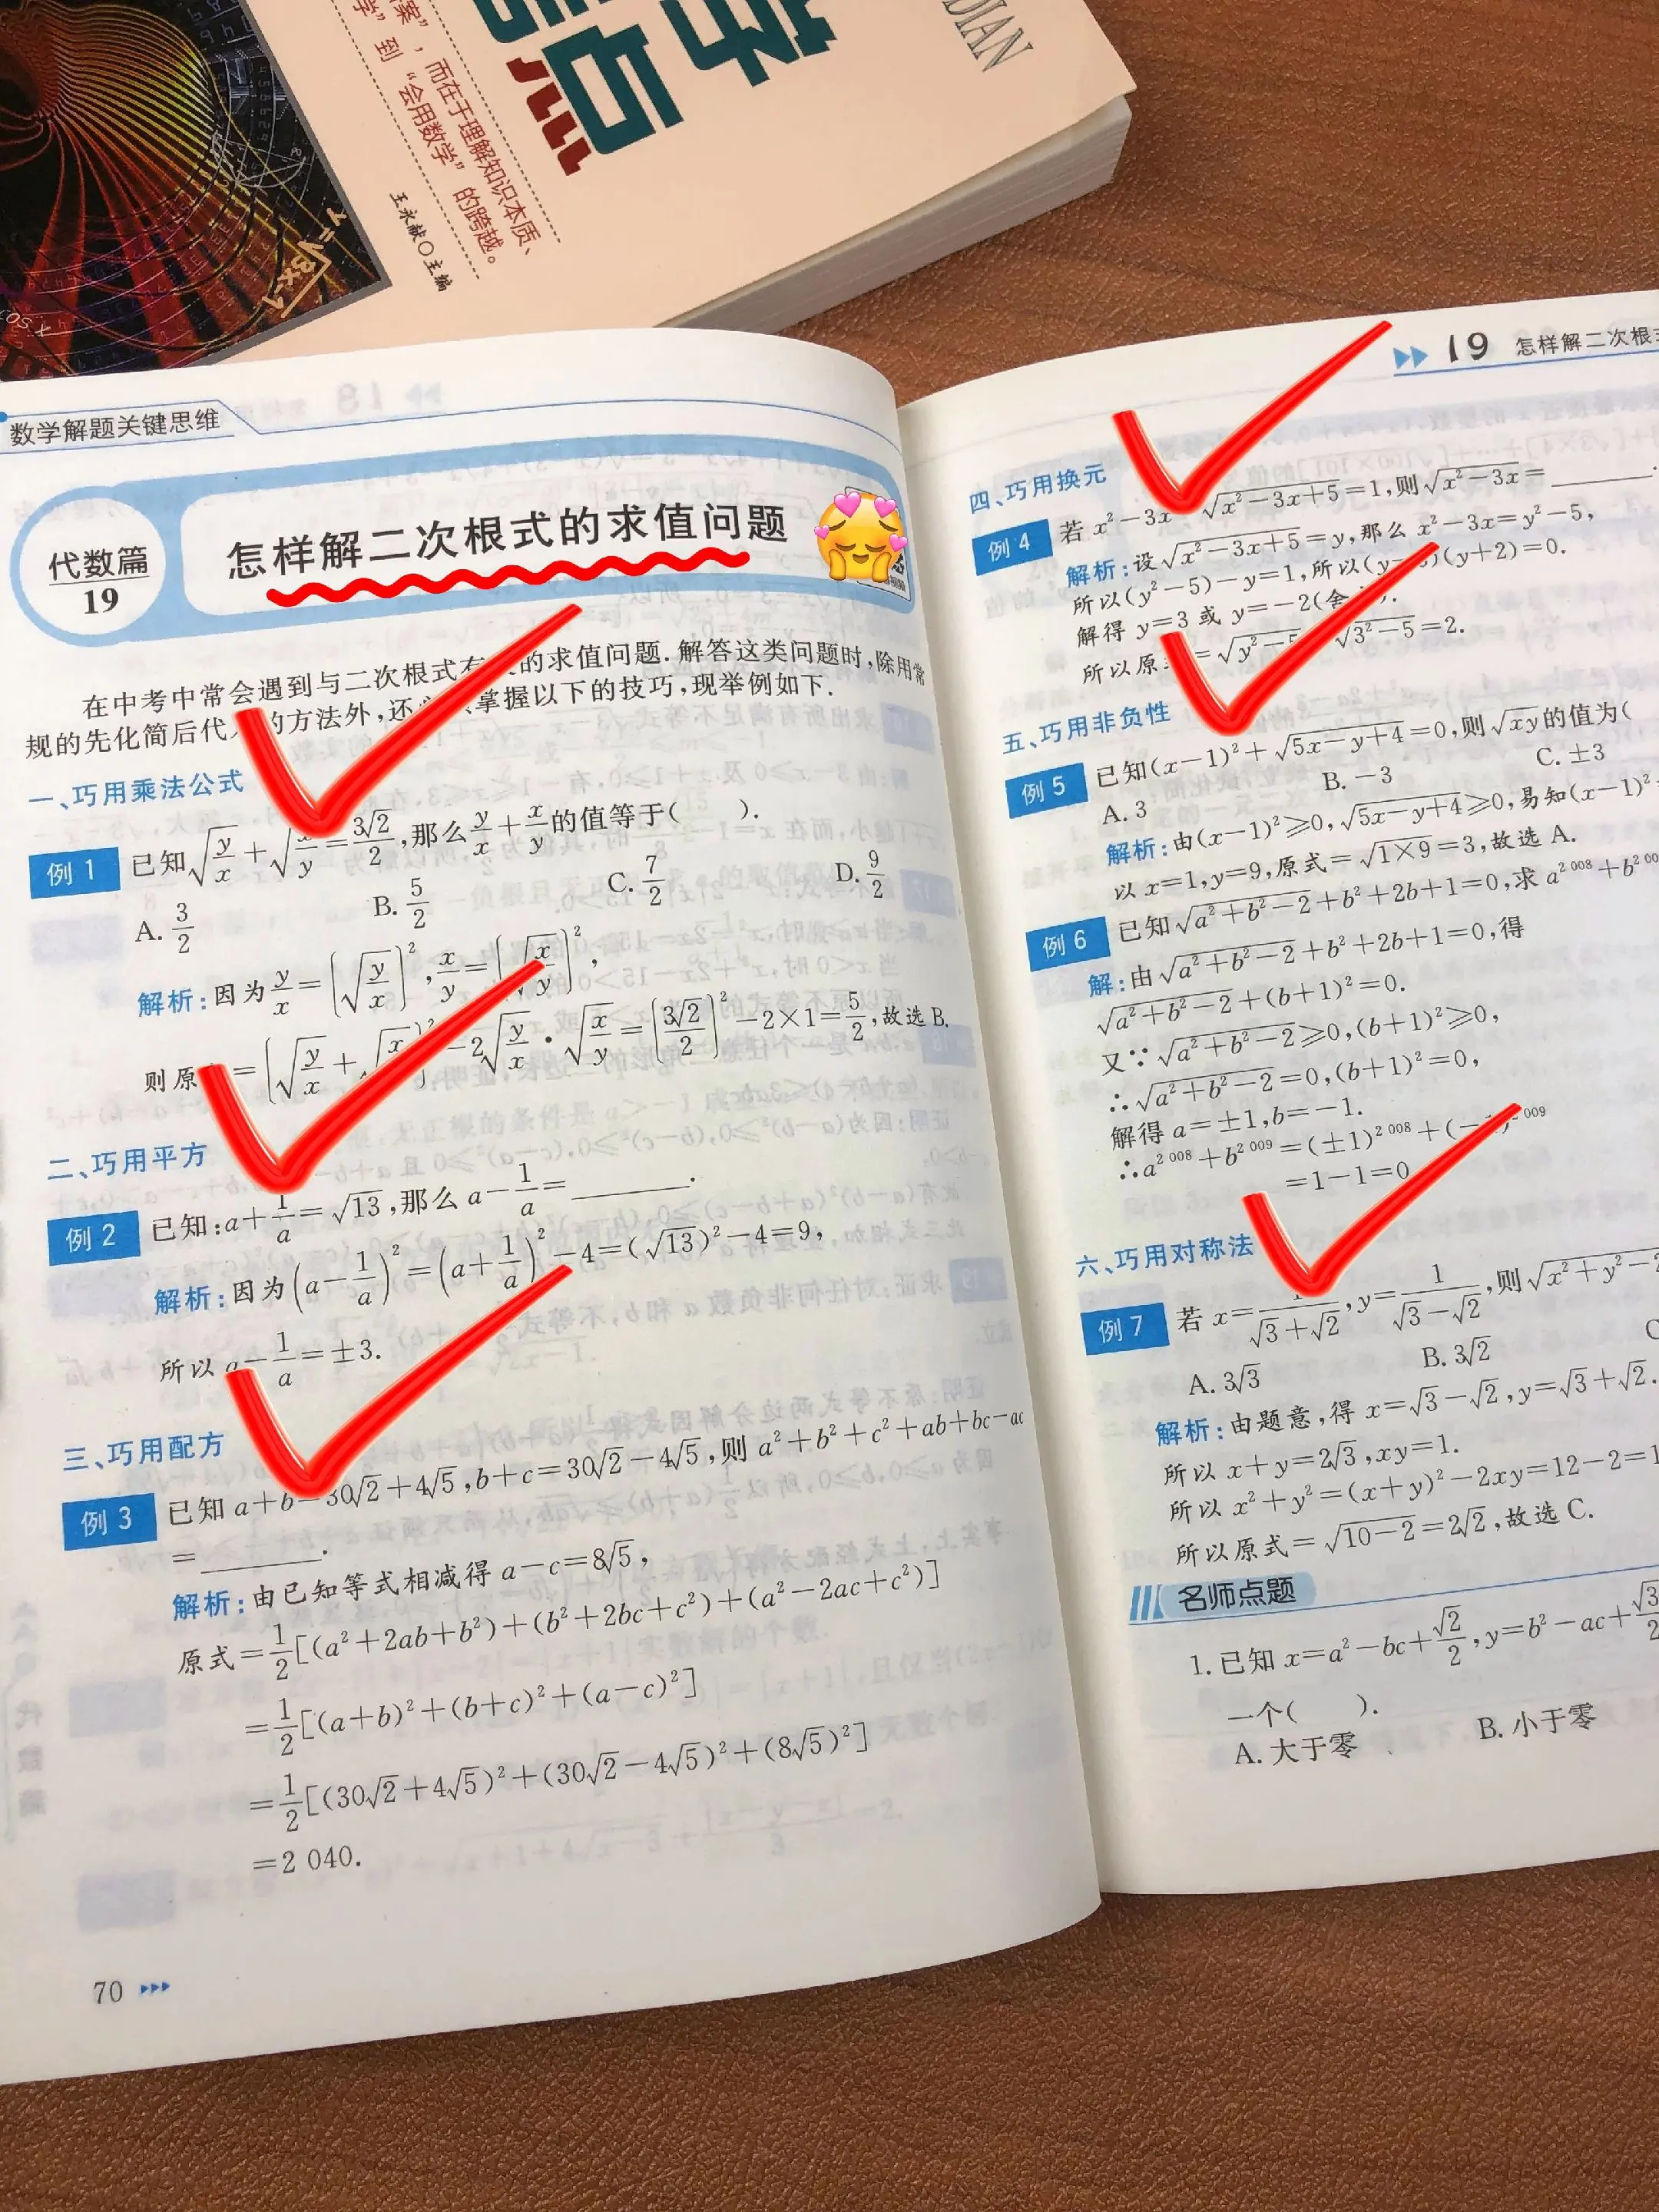 DIAN
字点
课”，而在于理解知识本质、
学”到“会用数学”的跨越。
王永献○主编
数学解题关键思维
代数篇
19
怎样解二次根式的求值问题
在中考中常会遇到与二次根式有 的求值问题.解答这类问题时,除用常
规的先化简后代 的方法外,还 掌握以下的技巧,现举例如下.
一、巧用乘法公式
例1 已知√(y/x)+√( /y)=3√2/2,那么y/x+x/y的值等于( ).
A. 3/2 B. 5/2 C. 7/2 D. 9/2
解析:因为y/x=(√(y/x))²,x/y=(√(x/y))²,
则原 =(√(y/x)+√(x/ ))²-2√(y/x)·√(x/y)=(3√2/2)²-2×1=5/2,故选B.
二、巧用平方
例2 已知:a+1/a=√13,那么a-1/a=______.
解析:因为(a-1/a)²=(a+1/a)²-4=(√13)²-4=9,
所以a-1/a=±3.
三、巧用配方
例3 已知a+b=30√2+4√5,b+c=30√2-4√5,则a²+b²+c²+ab+bc-ac
=______.
解析:由已知等式相减得a-c=8√5,
原式=1/2[(a²+2ab+b²)+(b²+2bc+c²)+(a²-2ac+c²)]
=1/2[(a+b)²+(b+c)²+(a-c)²]
=1/2[(30√2+4√5)²+(30√2-4√5)²+(8√5)²]
=2 040.
70
19 怎样解二次根
四、巧用换元
例4 若x²-3x √(x²-3x+5)=1,则√(x²-3x)=______.
解析:设√(x²-3x+5)=y,那么x²-3x=y²-5,
所以(y²-5)-y=1,所以(y- )(y+2)=0.
解得y=3或y=-2(舍 ).
所以原 =√(y²-5) √(3²-5)=2.
五、巧用非负性
例5 已知(x-1)²+√(5x-y+4)=0,则√(xy)的值为(
A. 3 B. -3 C. ±3
解析:由(x-1)²≥0,√(5x-y+4)≥0,易知(x-1)²
以x=1,y=9,原式=√(1×9)=3,故选A.
例6 已知√(a²+b²-2)+b²+2b+1=0,求a²⁰⁰⁸+b²⁰⁰
解:由√(a²+b²-2)+b²+2b+1=0,得
√(a²+b²-2)+(b+1)²=0.
又∵√(a²+b²-2)≥0,(b+1)²≥0,
∴√(a²+b²-2)=0,(b+1)²=0,
解得a=±1,b=-1.
∴a²⁰⁰⁸+b²⁰⁰⁹=(±1)²⁰⁰⁸+(- )²⁰⁰⁹
=1-1=0
六、巧用对称法
例7 若x=1/(√3+√2),y=1/(√3-√2),则√(x²+y²-
A. 3√3 B. 3√2 C
解析:由题意,得x=√3-√2,y=√3+√2.
所以x+y=2√3,xy=1.
所以x²+y²=(x+y)²-2xy=12-2=1
所以原式=√(10-2)=2√2,故选C.
名师点题
1.已知x=a²-bc+√2/2,y=b²-ac+√3/2
一个( ).
A. 大于零 B. 小于零